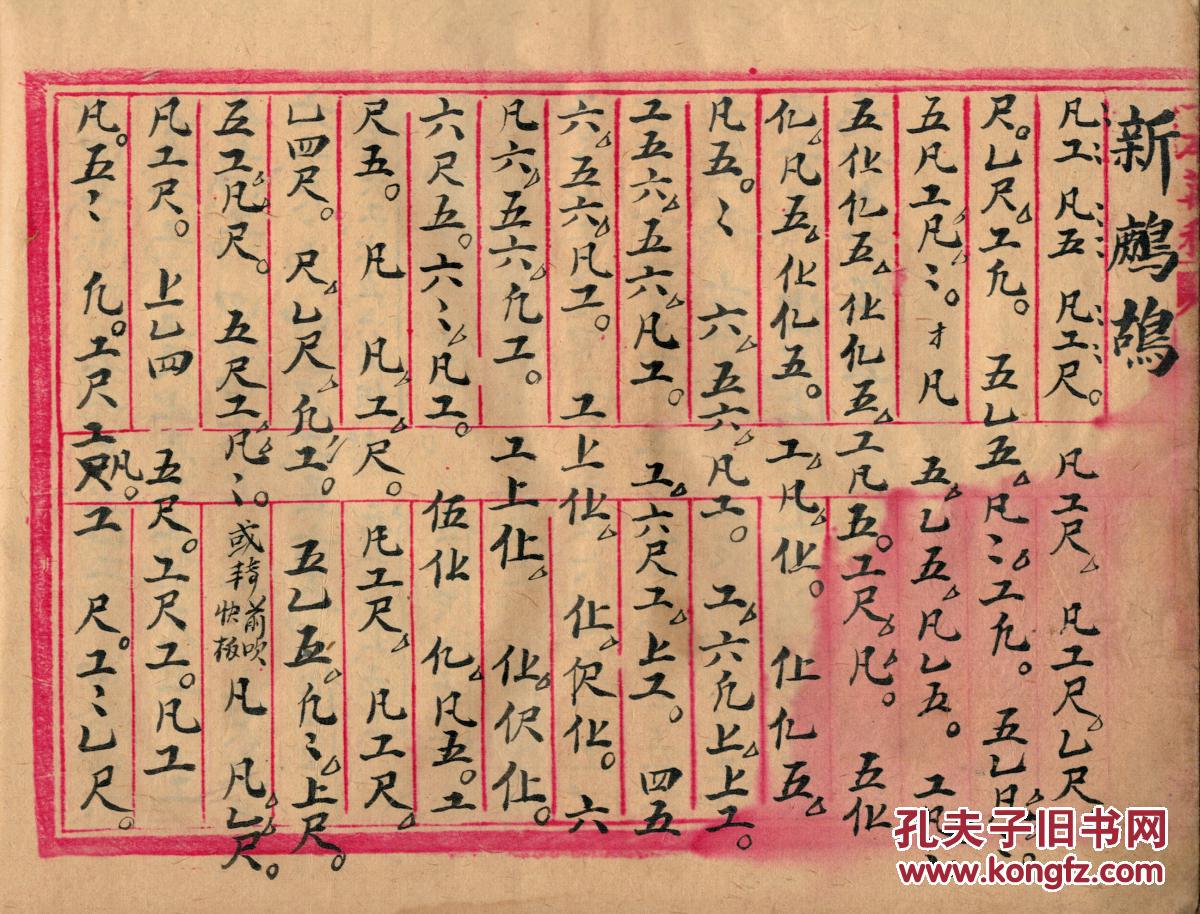 新鷓鴣
凡工。凡五凡工尺。凡工尺。凡工尺。乚尺
尺。乚尺。工凡。五乚五。凡〻。工凡。五乚
五凡工凡〻。才凡五。乚五。凡乚五。工凡
五仩亿五。仩亿五。工凡五。工尺。凡。五仩
亿。凡五。仩亿五。工凡。仩。仩亿五。
凡五。〻六。五六。凡工。工。六凡上。上工。
工五六。五六。凡工。工。六尺工。上工。四五
六。五六。凡工。工上仩。仩。伬仩。六
凡六。五六。凡工。工上仩。仩。伬仩。
六尺五。六〻。凡工。伍仩亿。凡五。工
尺五。凡凡。工。尺。凡工尺。凡工尺。
乚四尺。尺。乚尺。凡工。五乚五。凡〻。上尺。
五工。凡。尺。五尺工。凡〻。或轉前吹快板凡凡。乚尺。
凡工尺。上乚四五尺。工尺工。凡工
凡。五〻凡。工尺工凡。工尺。工〻乚尺。
孔夫子旧书网
www.kongfz.com